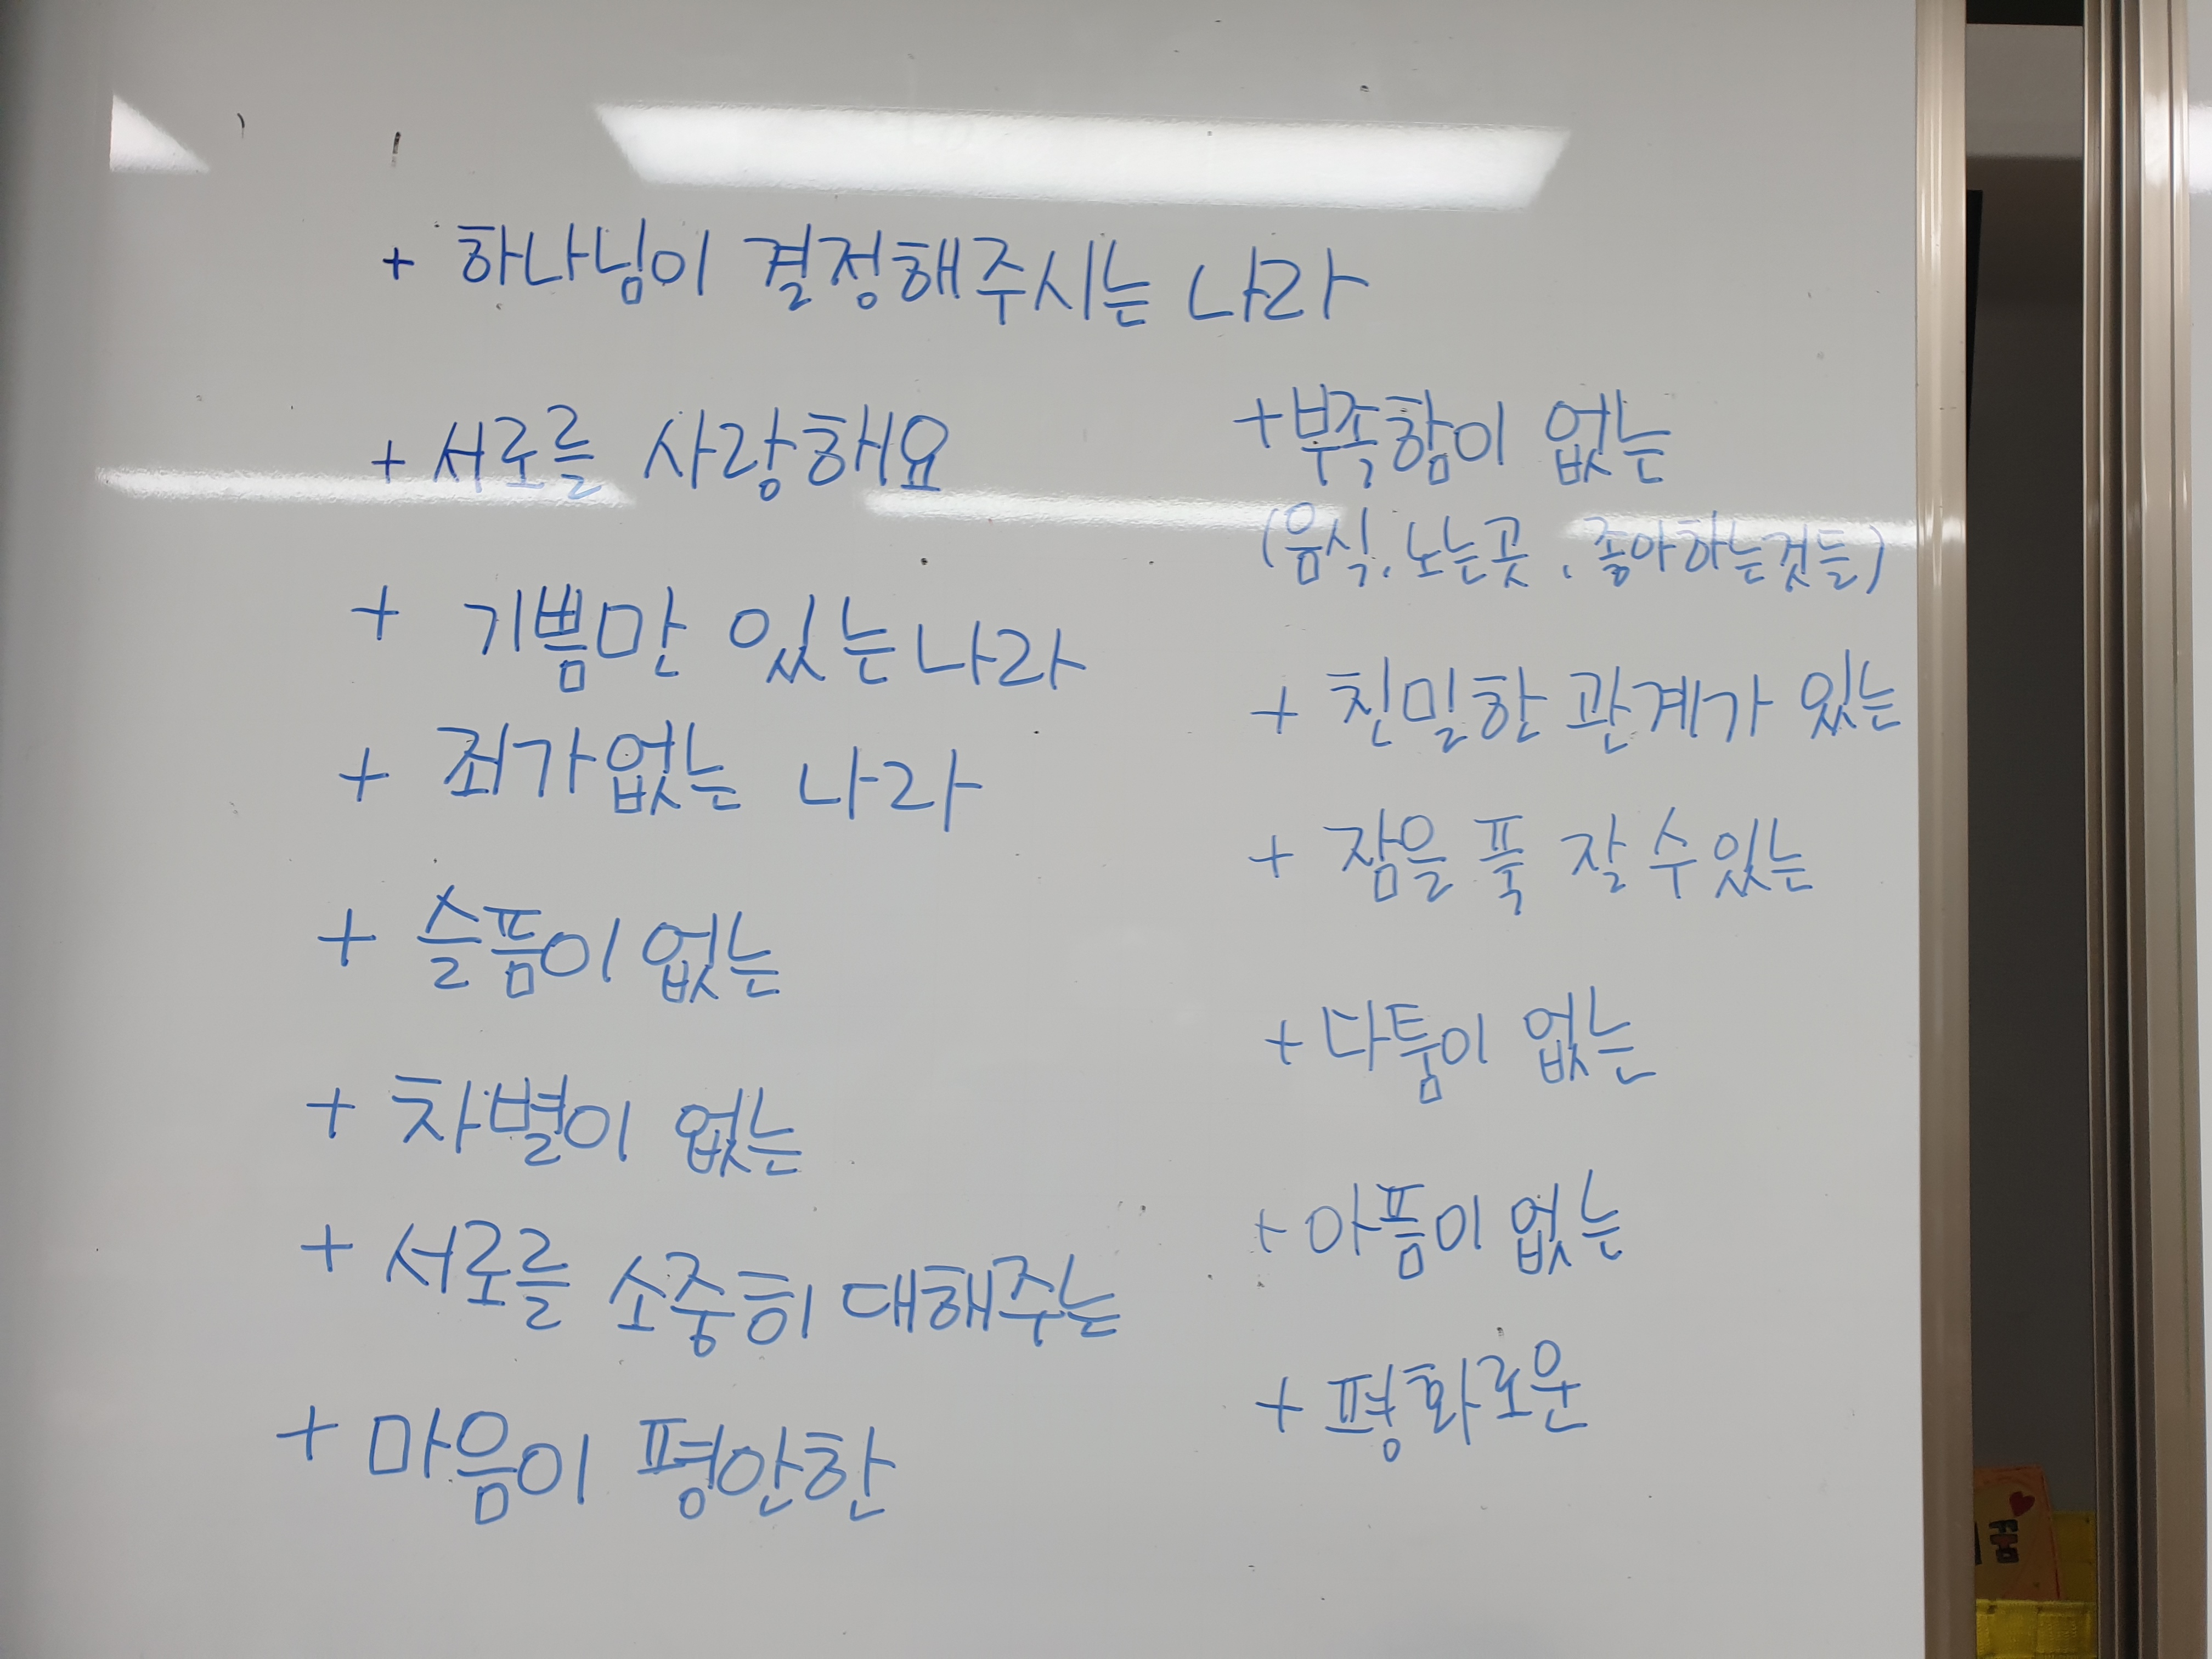 + 하나님이 결정해주시는 나라
+ 서로를 사랑해요
+ 기쁨만 있는나라
+ 죄가없는 나라
+ 슬픔이 없는
+ 차별이 없는
+ 서로를 소중히 대해주는
+ 마음이 평안한
+ 부족함이 없는
(음식, 노는곳, 좋아하는것들)
+ 친밀한 관계가 있는
+ 잠을 푹 잘 수 있는
+ 다툼이 없는
+ 아픔이 없는
+ 평화로운